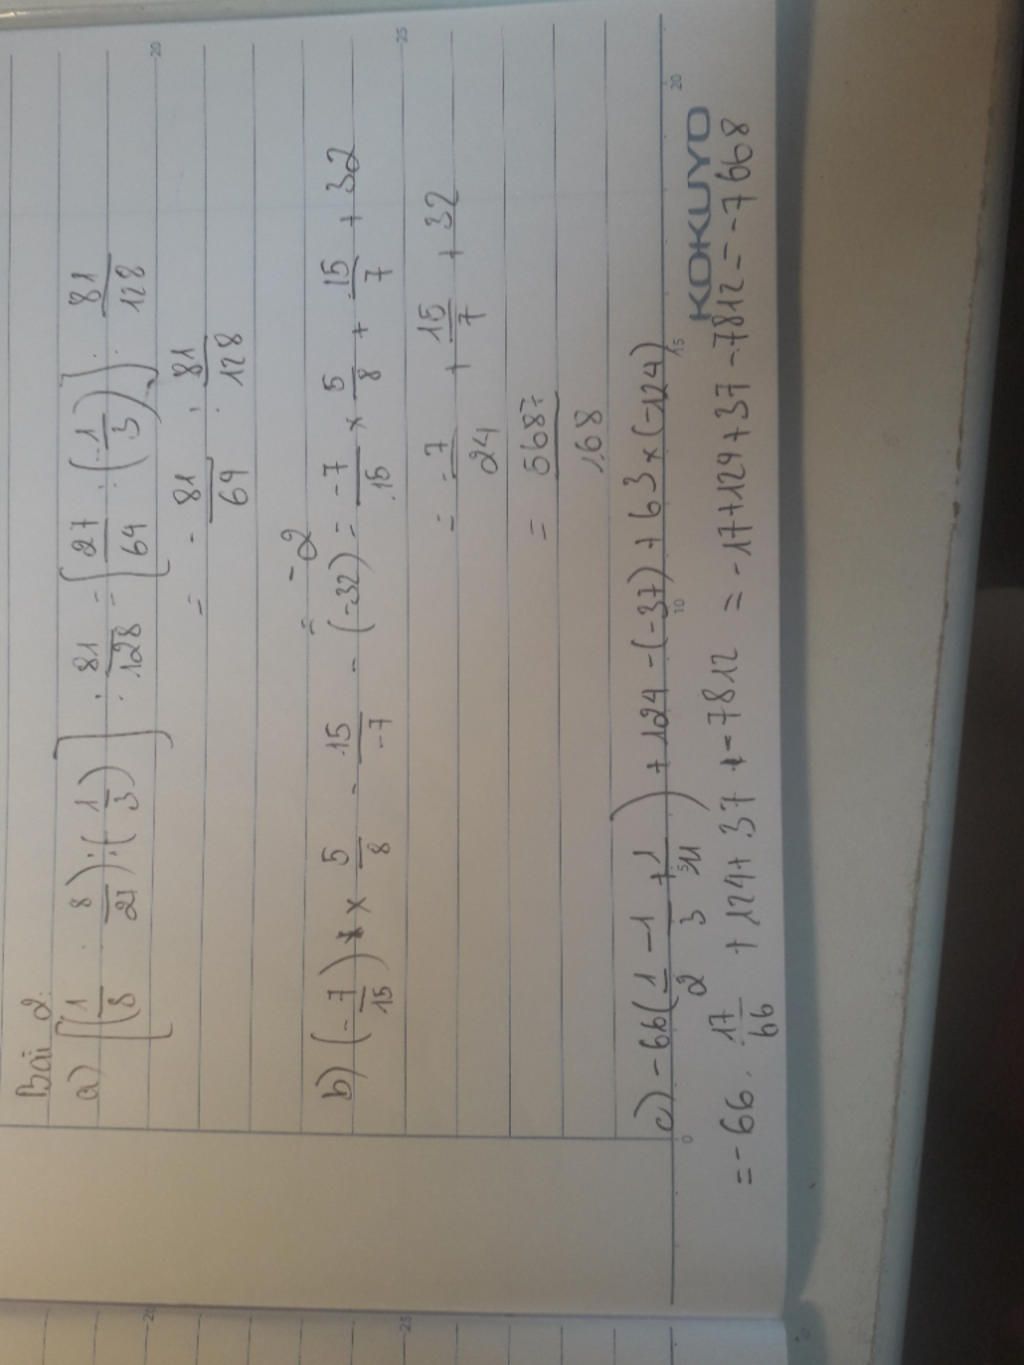 Bài 2:
a) [(1/8 : 8/27) : (1/3)] : 81/128 = [27/64 : (-1/3)] : 81/128
= - 81/64 : 81/128
= -2
b) (-7/15) x 5/8 - 15/-7 - (-32) = -7/15 x 5/8 + 15/7 + 32
= -7/24 + 15/7 + 32
= 5687/168
c) -66(1/2 - 1/3 + 1/11) + 124 - (-37) + 63 x (-124)
KOKUYO
= -66 . 17/66 + 124 + 37 + -7812 = -17+124+37-7812 = -7668